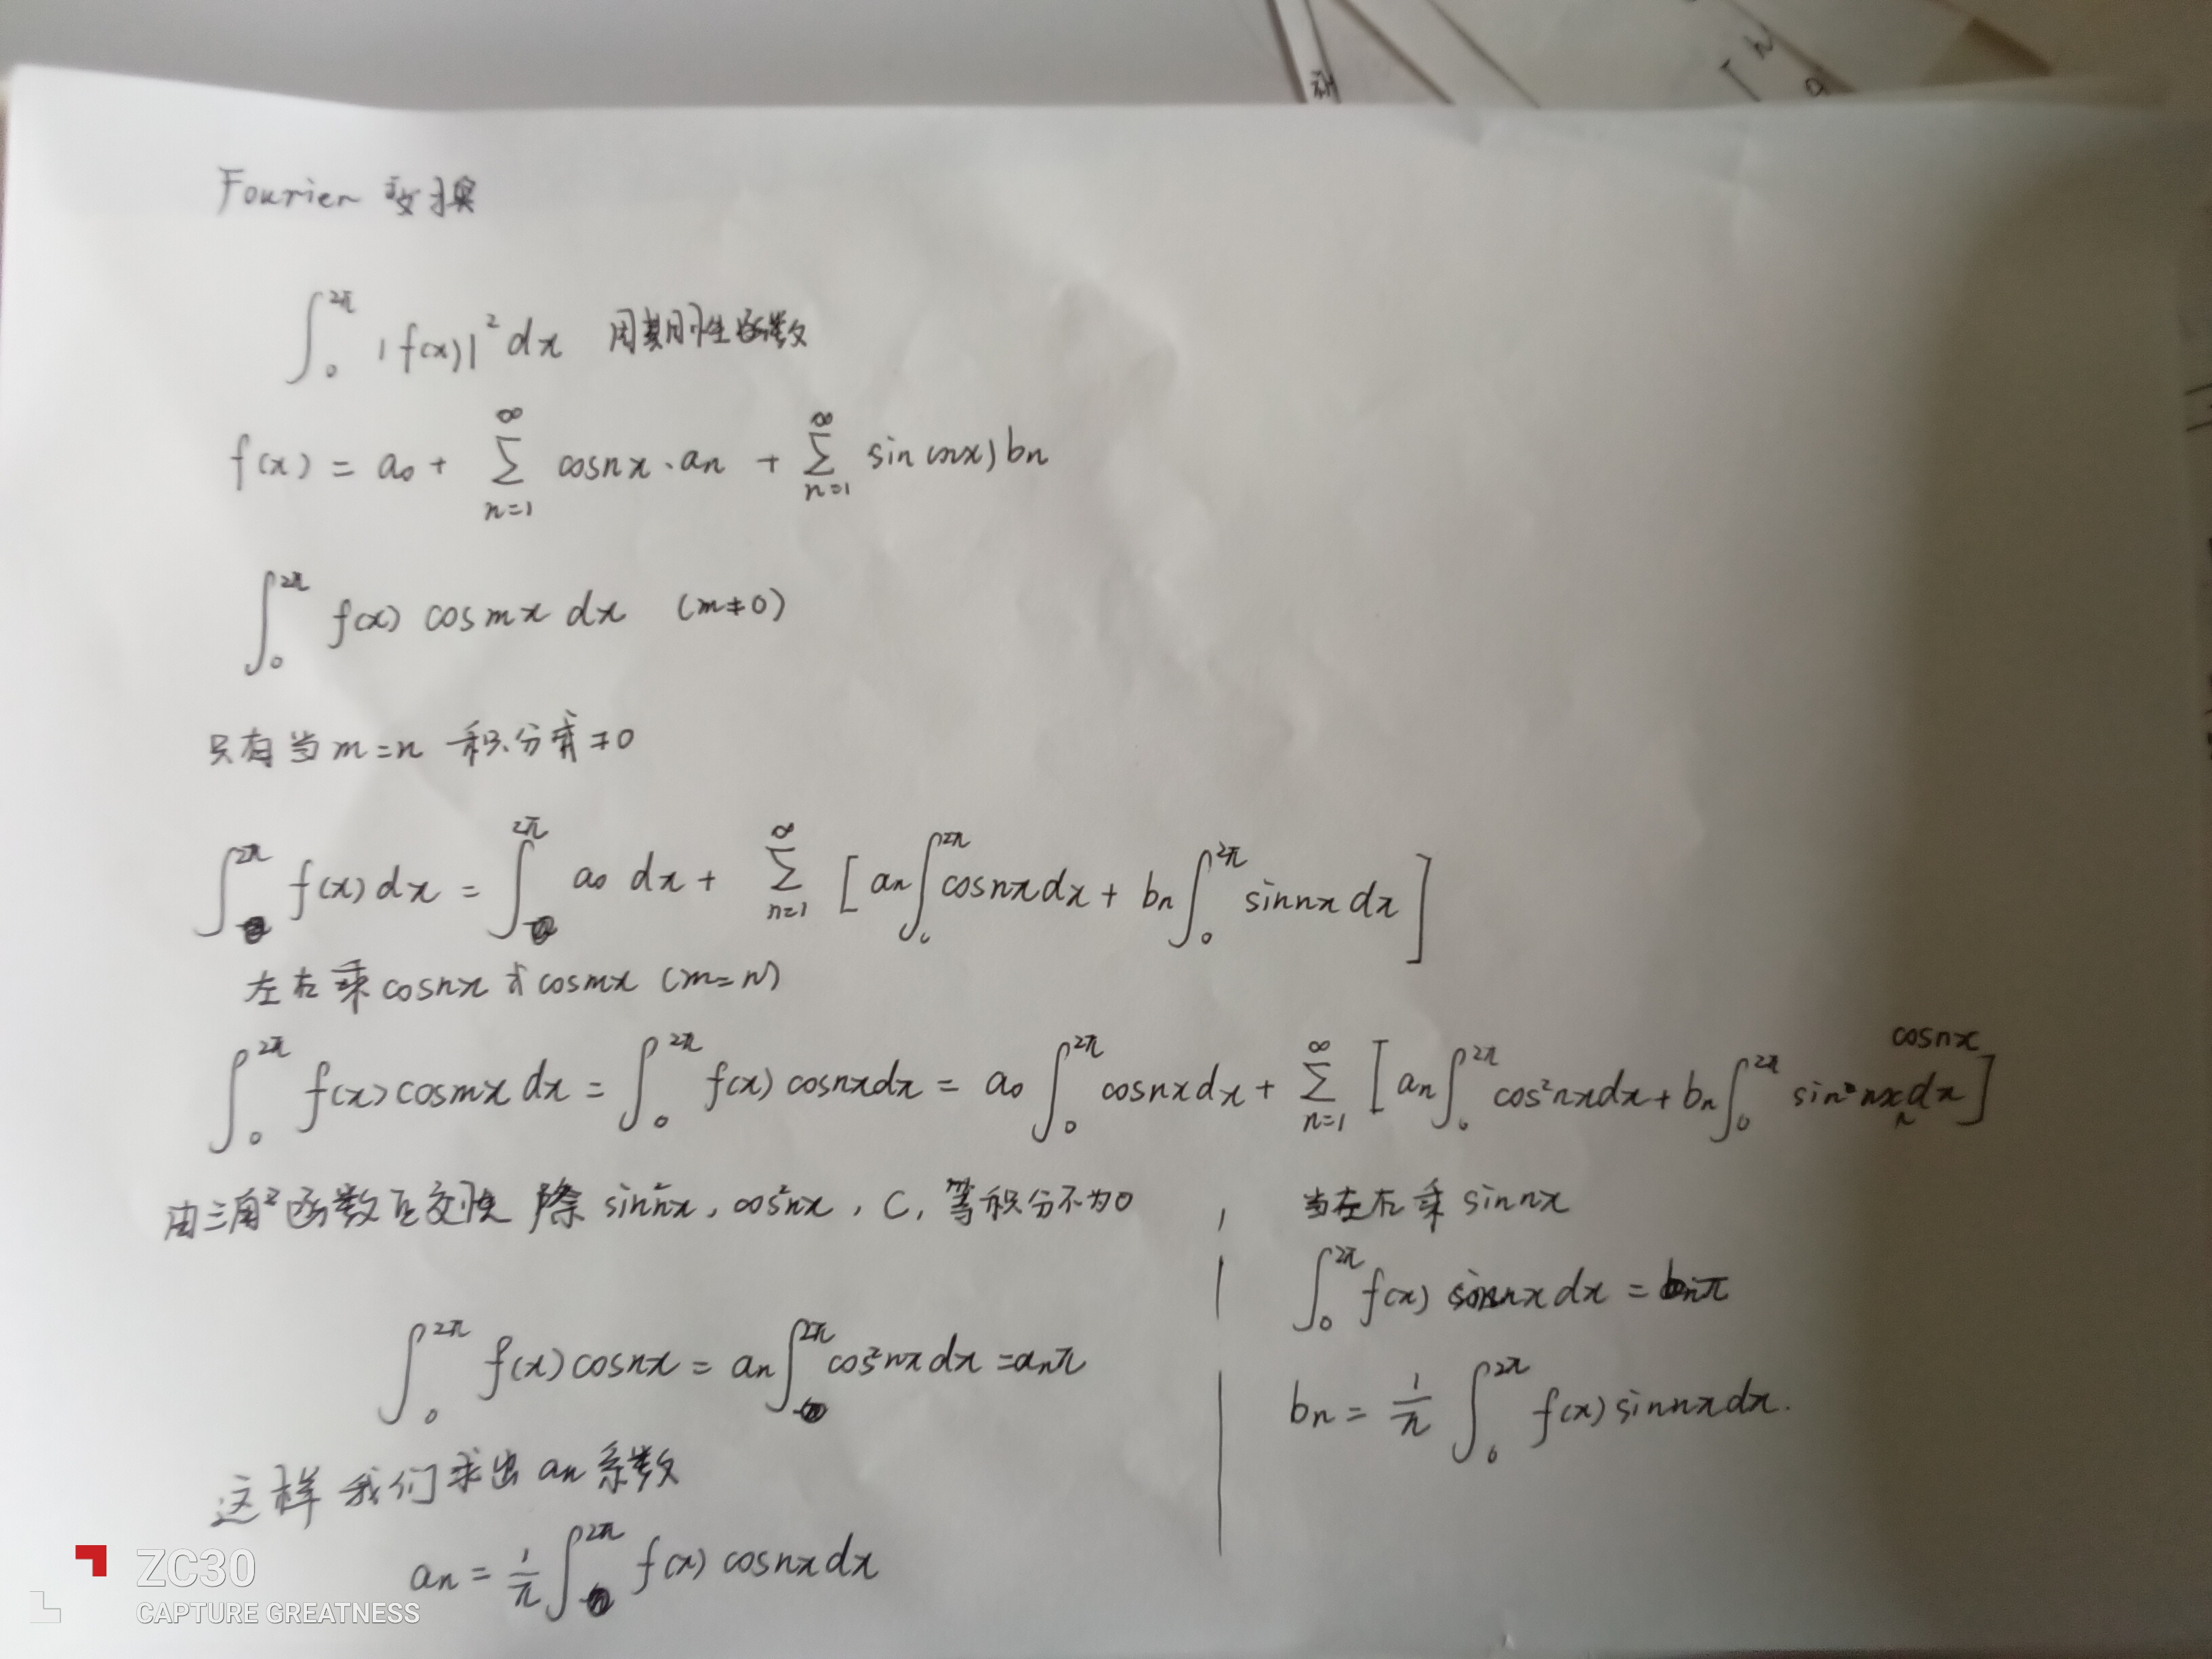 Fourier 变换
∫₀^{2π} |f(x)|² dx 周期性函数
f(x) = a₀ + ∑_{n=1}^{∞} cosnx · aₙ + ∑_{n=1}^{∞} sin(nx) bₙ
∫₀^{2π} f(x) cosmx dx (m≠0)
只有当 m=n 积分才≠0
∫^{2π} f(x)dx = ∫^{2π} a₀ dx + ∑_{n=1}^{∞} [aₙ∫₀^{2π} cosnxdx + bₙ∫₀^{2π} sinnx dx]
左右乘 cosnx 或 cosmx (m=n)
∫₀^{2π} f(x) cosmx dx = ∫₀^{2π} f(x) cosnxdx = a₀ ∫₀^{2π} cosnxdx + ∑_{n=1}^{∞} [aₙ∫₀^{2π} cos²nxdx + bₙ∫₀^{2π} sin nx cosnx dx]
由三角函数正交性 除 sin²nx, cos²nx, C, 等积分不为0
∫₀^{2π} f(x) cosnx = aₙ∫^{2π} cos²nx dx = aₙπ
这样我们求出 aₙ 系数
aₙ = 1/π ∫^{2π} f(x) cosnxdx
当左右乘 sinnx
∫₀^{2π} f(x) sinnx dx = bₙπ
bₙ = 1/π ∫₀^{2π} f(x) sinnxdx.
ZC30
CAPTURE GREATNESS